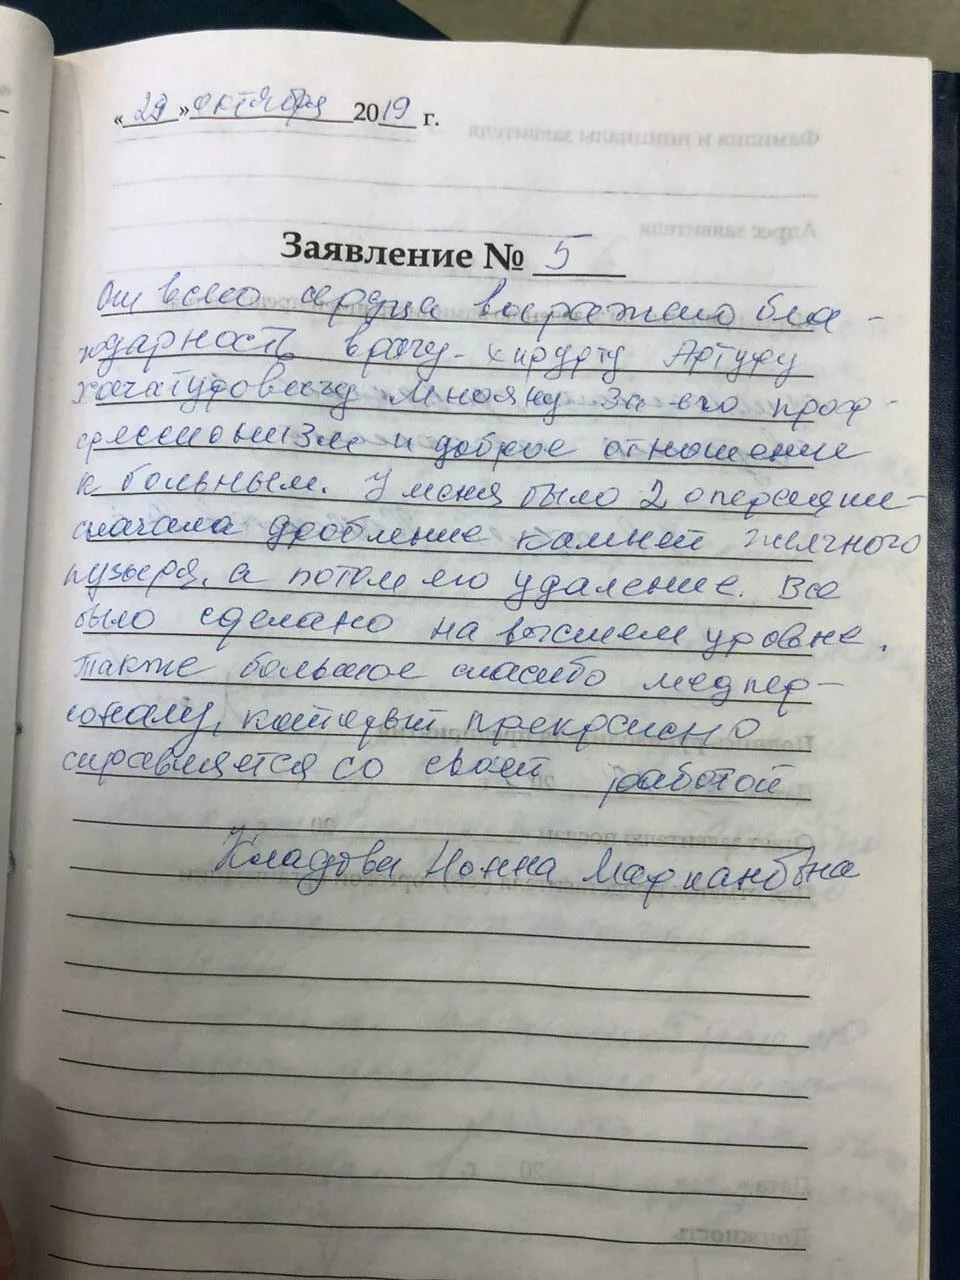 «29» октября 2019 г.
Заявление № 5
От всего сердца выражаю бла-
годарность врачу-хирургу Артуру
Хачатуровичу Мнояну за его проф-
фессионизм и доброе отношение
к больным. У меня было 2 операции-
сначала дробление камней желчного
пузыря, а потом его удаление. Все
было сделано на высшем уровне.
Также большое спасибо медпер-
соналу, который прекрасно
справляется со своей работой
Кладова Нонна Мариановна